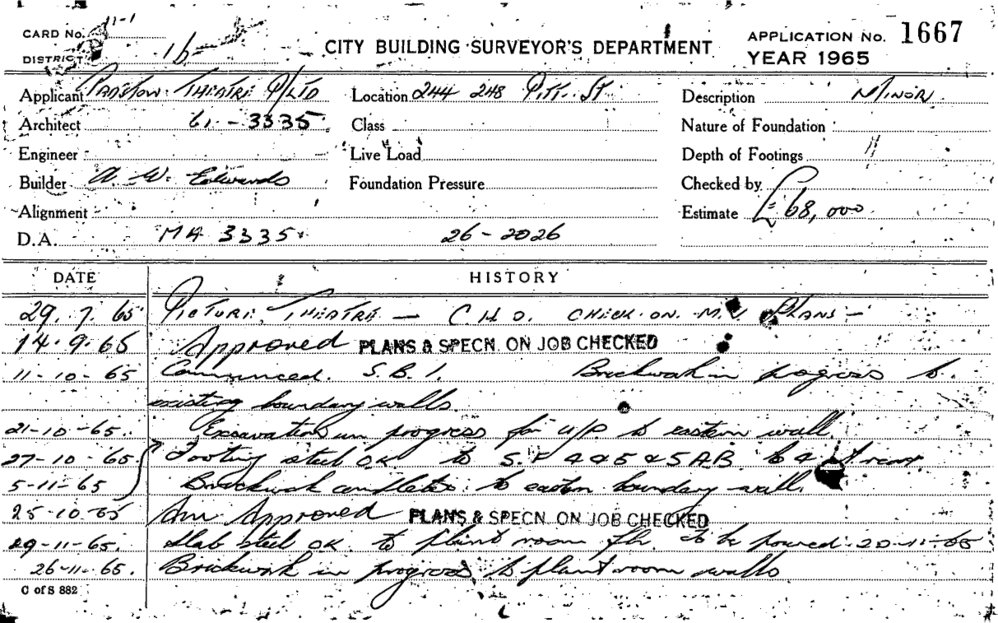 CARD No. 11-1
CITY BUILDING SURVEYOR'S DEPARTMENT
APPLICATION No. 1667
DISTRICT 16
YEAR 1965
Applicant THEATRE P/LTD Location 244 248 PITT. ST Description MINOR
Architect 61 - 3335 Class Nature of Foundation
Engineer Live Load Depth of Footings
Builder A. W. Edwards Foundation Pressure Checked by
Alignment Estimate £68,000
D.A. MA 3335 26-2026
DATE HISTORY
29.7.65 PICTURE THEATRE - C.H.O. CHECK ON PLANS -
14-9-65 Approved PLANS & SPECN. ON JOB CHECKED
11-10-65 Commenced. S.B.1. Brickwork in progress to
existing boundary walls.
21-10-65. Excavations in progress for U/P to eastern wall
27-10-65 Footing steel OK to S.F 4 & 5 & S.A.B. to
5-11-65 Brickwork completed to eastern boundary wall.
25-10-65 Am Approved PLANS & SPECN. ON JOB CHECKED
29-11-65. Slab steel OK. to plant room flr. To be poured 20-11-65
26-11-65. Brickwork in progress to plant room walls
C of S 882